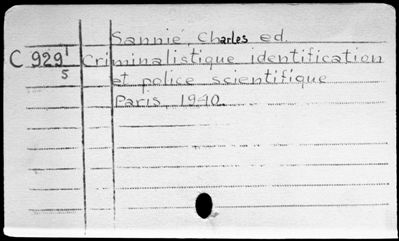 Sannié, Charles ed
C 929¹ Criminalistique identification
5 et police scientifique
Paris, 1940.